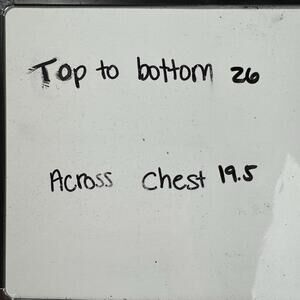 Top to bottom 26
Across Chest 19.5